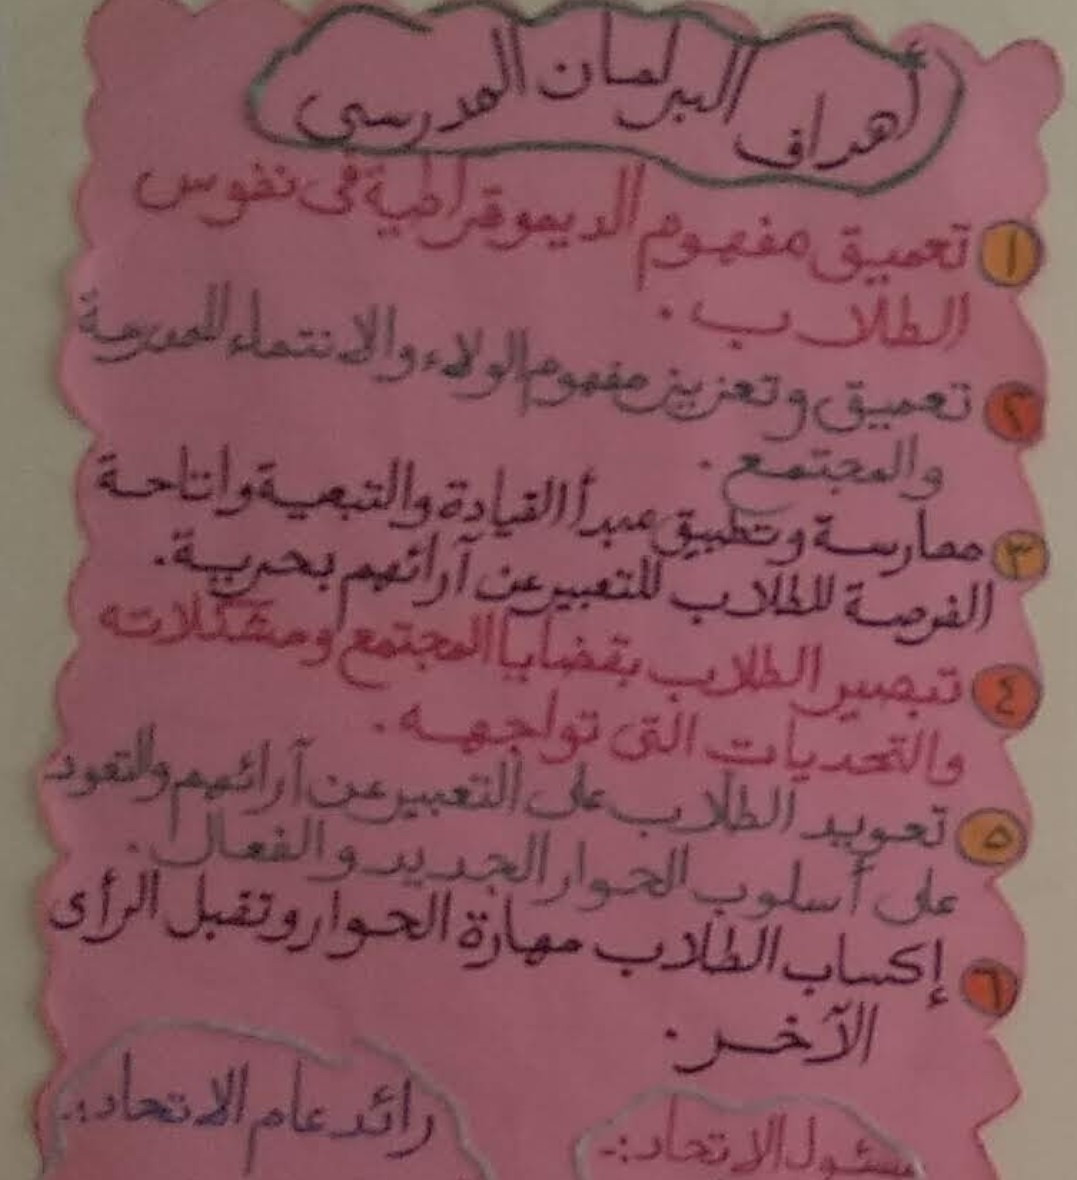 أهداف البرلمان المدرسي
١ تعميق مفهوم الديموقراطية فى نفوس
الطلاب .
٢ تعميق وتعزيز مفهوم الولاء والانتماء للمدرسة
والمجتمع .
٣ ممارسة وتطبيق مبدأ القيادة والتبعية واتاحة
الفرصة للطلاب للتعبير عن آرائهم بحرية .
٤ تبصير الطلاب بقضايا المجتمع ومشكلاته
والتحديات التى تواجهه .
٥ تعويد الطلاب على التعبير عن آرائهم والتعود
على أسلوب الحوار الجديد والفعال .
٦ إكساب الطلاب مهارة الحوار وتقبل الرأى
الآخر .
مسئول الاتحاد :-
رائد عام الاتحاد :-